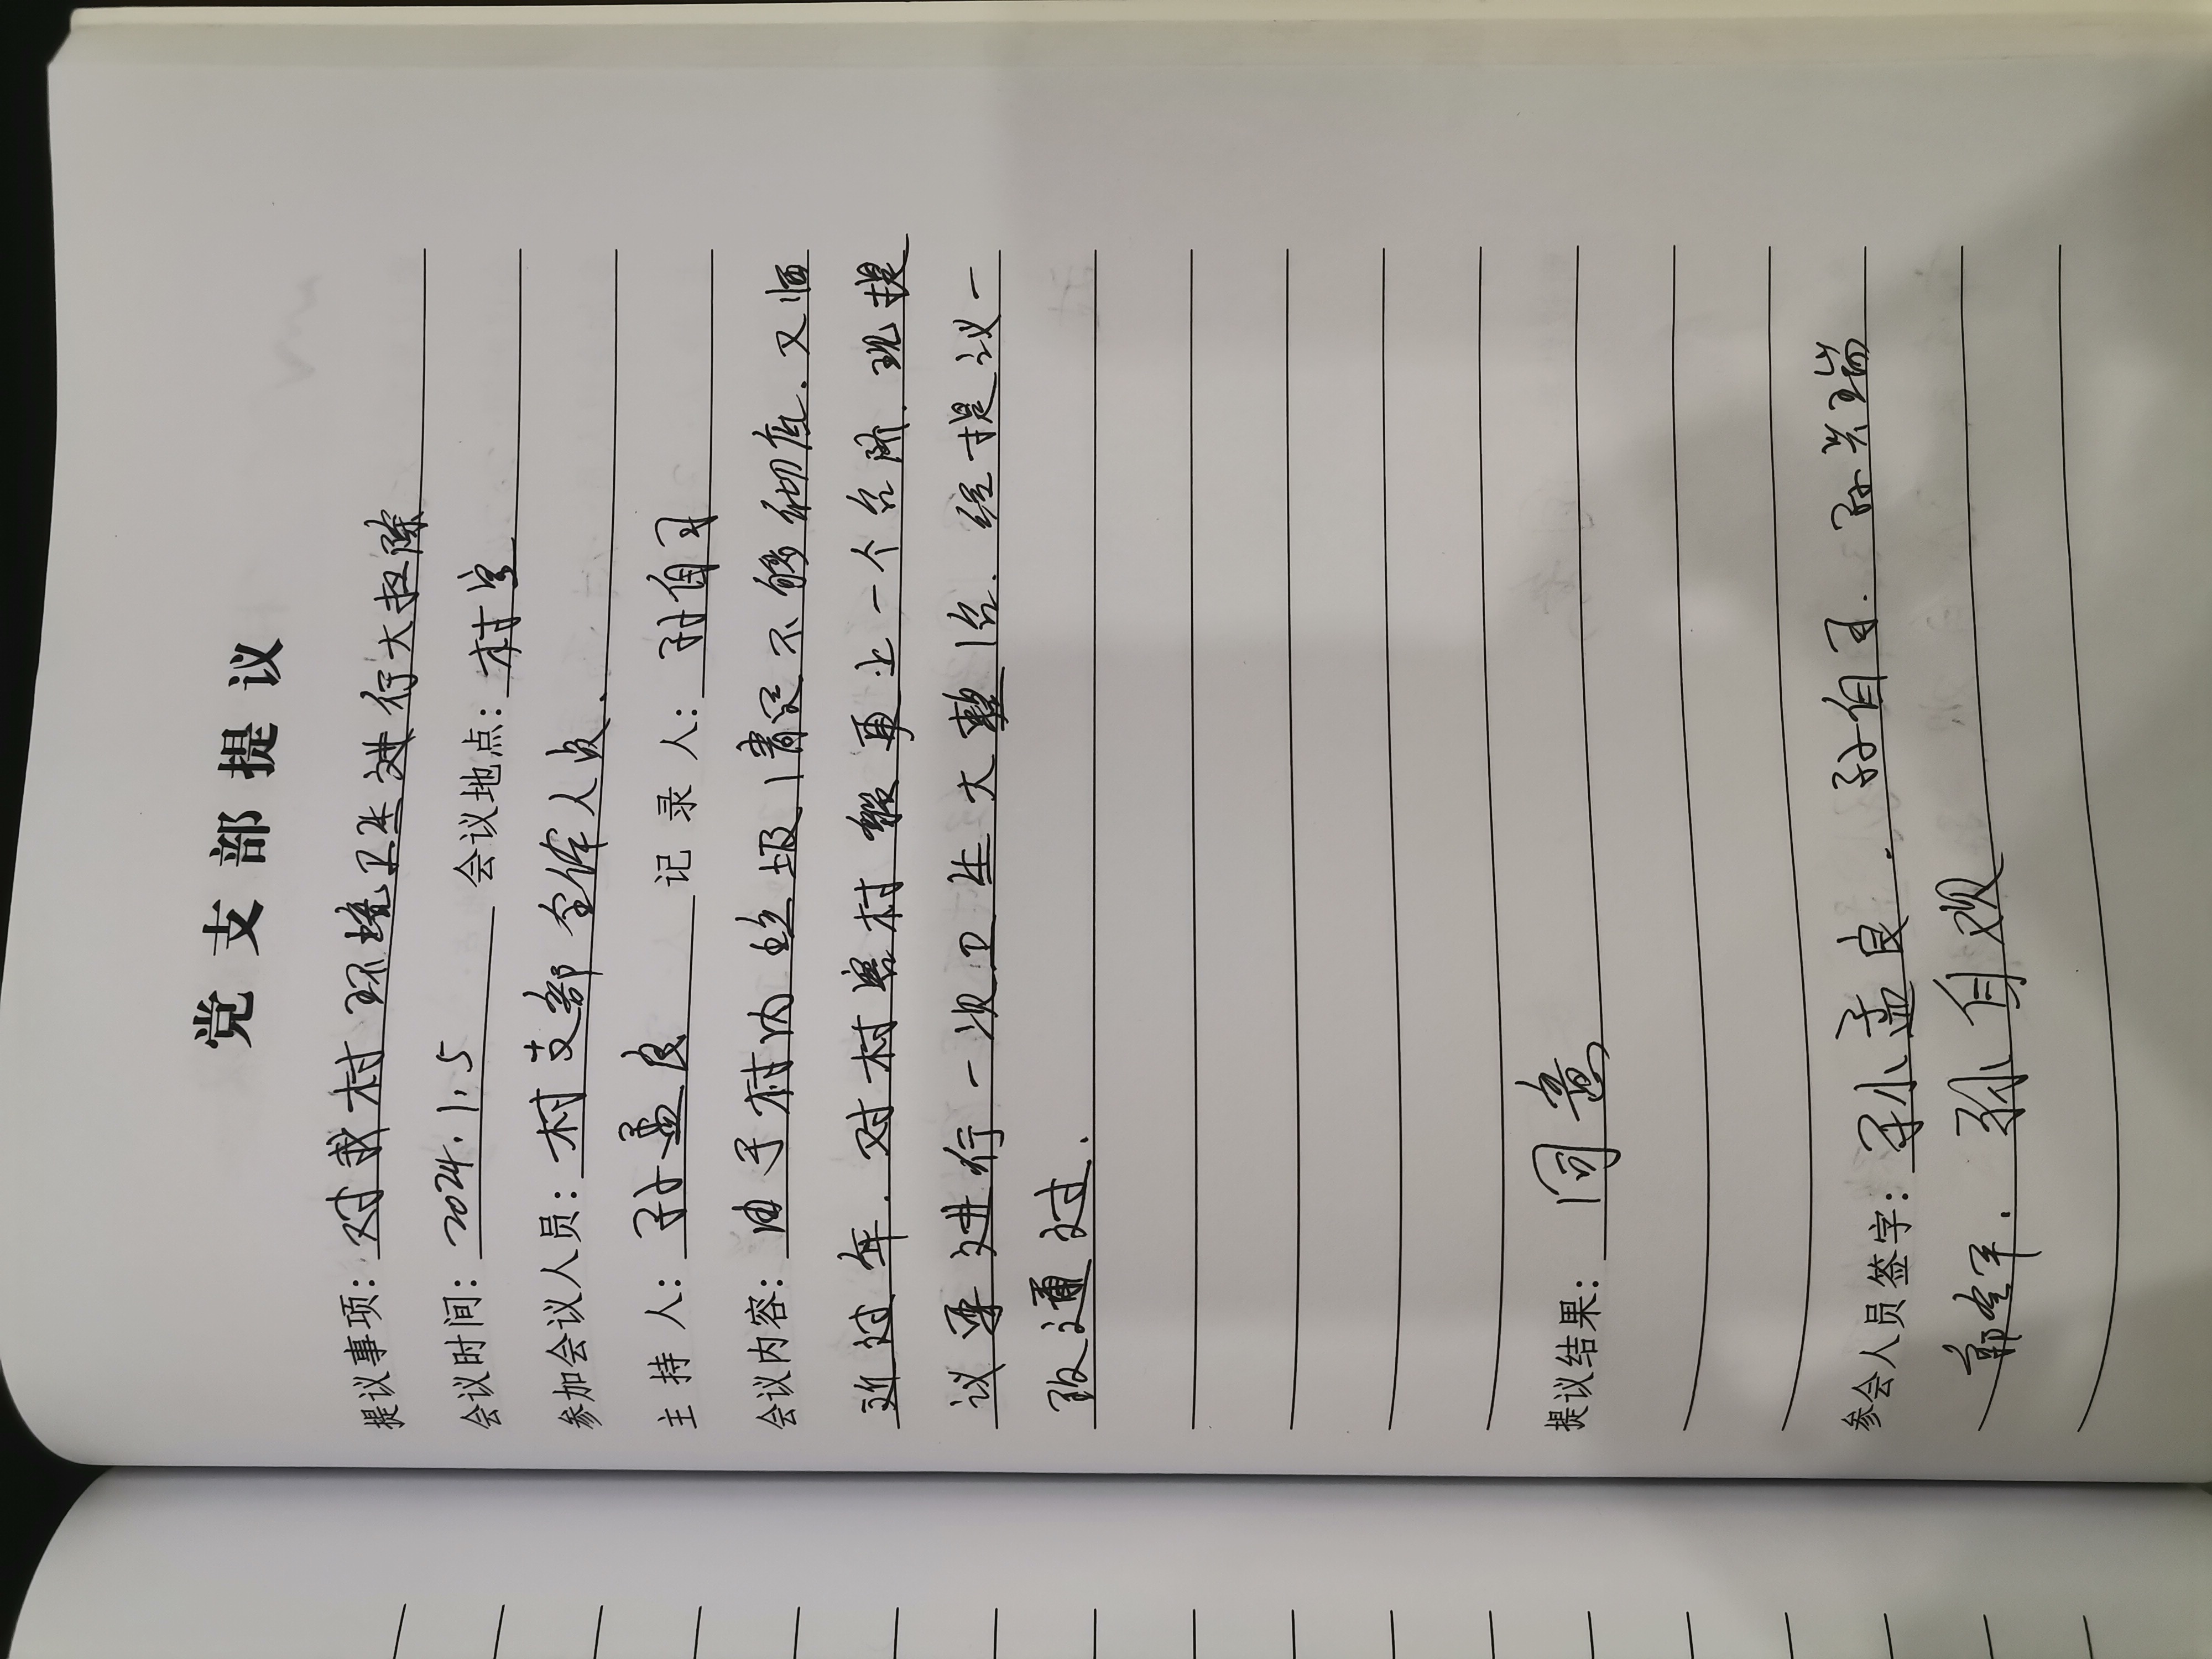 党支部提议
提议事项：对我村环境卫生进行大扫除
会议时间：2024.1.5 会议地点：村室
参加会议人员：村支部全体人员.
主持人：孙孟良 记录人：孙自习
会议内容：由于村内垃圾清运不能彻底.又恒
近过年.对村容村貌再上一个台阶.现提
议要进行一次卫生大整治.经提议一
致通过.
提议结果：同意
参会人员签字：孙孟良.孙自习.孙兰瑞
郭 .孙自欢